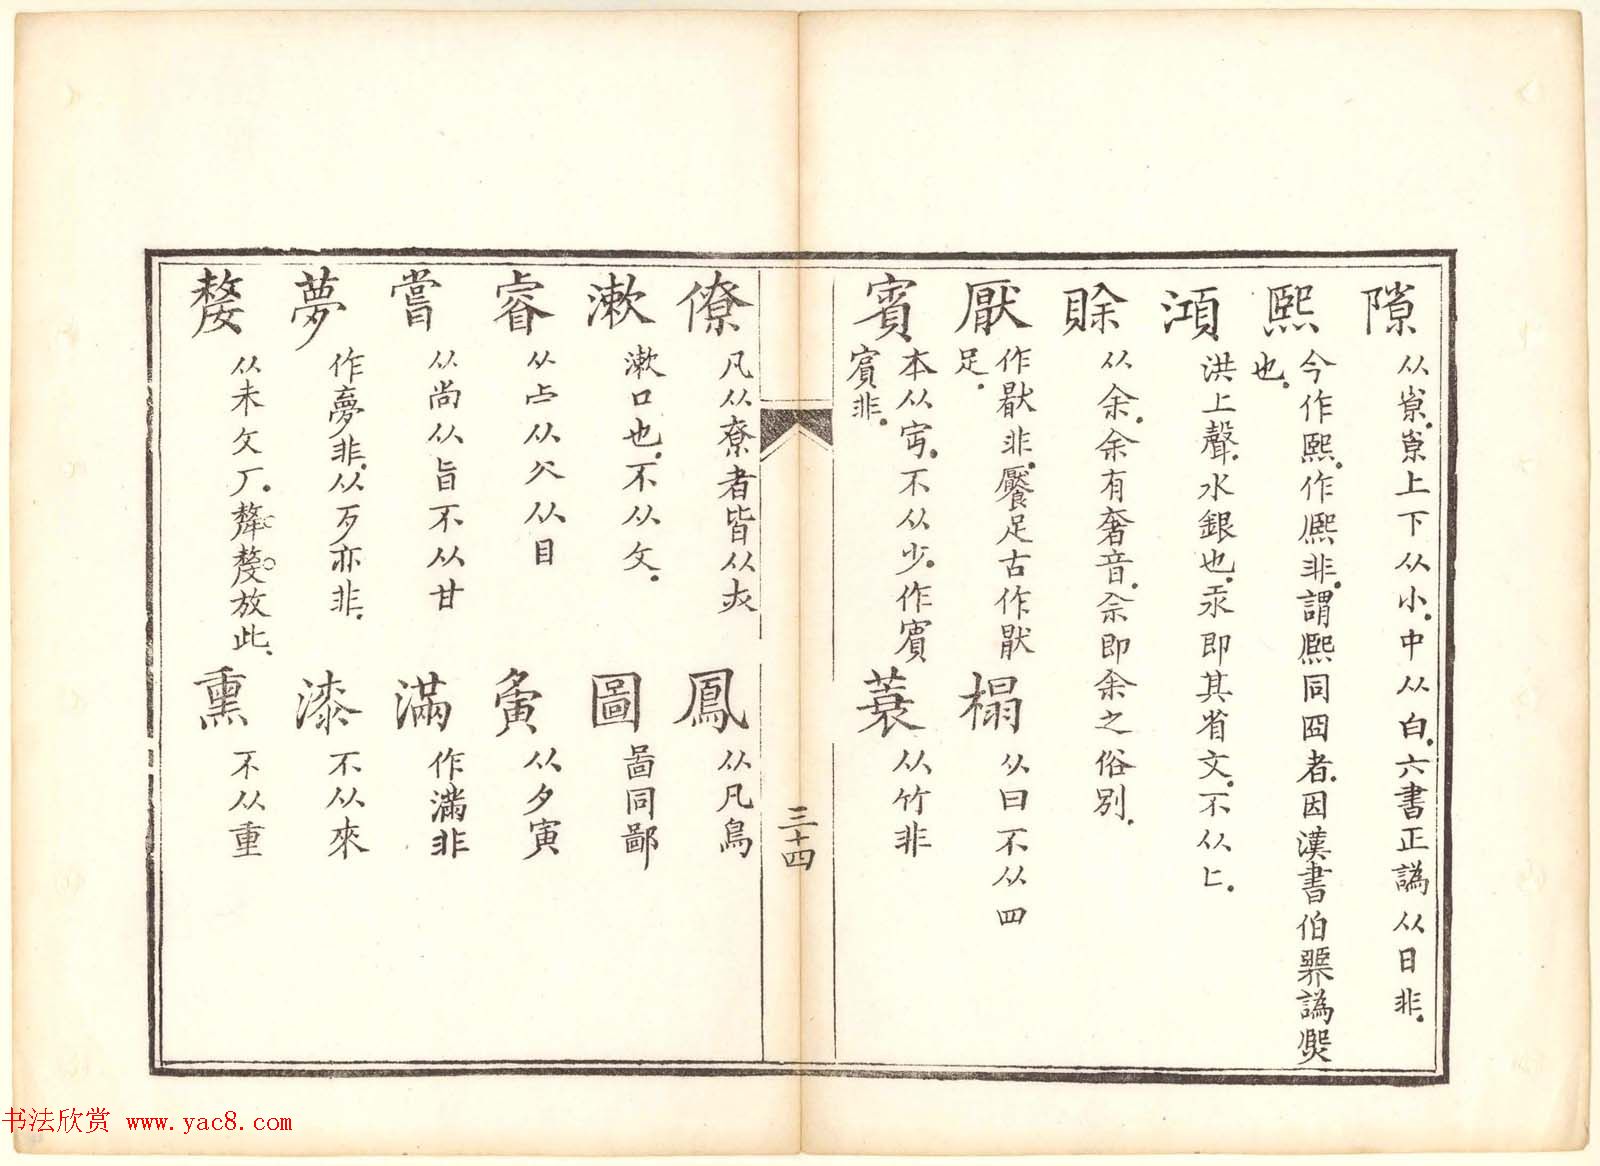 隙 从𡭴.𡭴上下从小.中从白.六書正譌从日非.
熙 今作熈.作熙非.謂熈同囧者.因漢書伯臩譌煚
也.
澒 洪上聲.水銀也.汞即其省文.不从匕.
賖 从余.余有奢音.佘即余之俗別.
厭 作猒非.饜足古作猒
足.
榻 从曰不从四
賓 本从丏.不从少.作賔
賔非.
蓑 从竹非
三十四
僚 凡从尞者皆从灻
鳳 从凡鳥
漱 漱口也.不从攵.
圖 啚同鄙
睿 从𣦵从谷从目
夤 从夕寅
嘗 从尚从旨不从甘
滿 作滿非
夢 作夣非.从歹亦非.
漆 不从來
嫠 从未攵厂.犛漦放此.
熏 不从重
书法欣赏 www.yac8.com